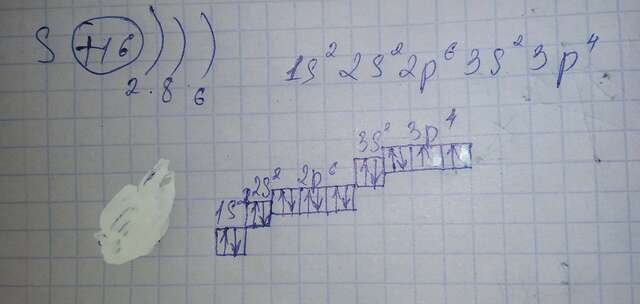 S +16 ) ) )
2 8 6
1s² 2s² 2p⁶ 3s² 3p⁴
3s² 3p⁴
1s² 2s² 2p⁶